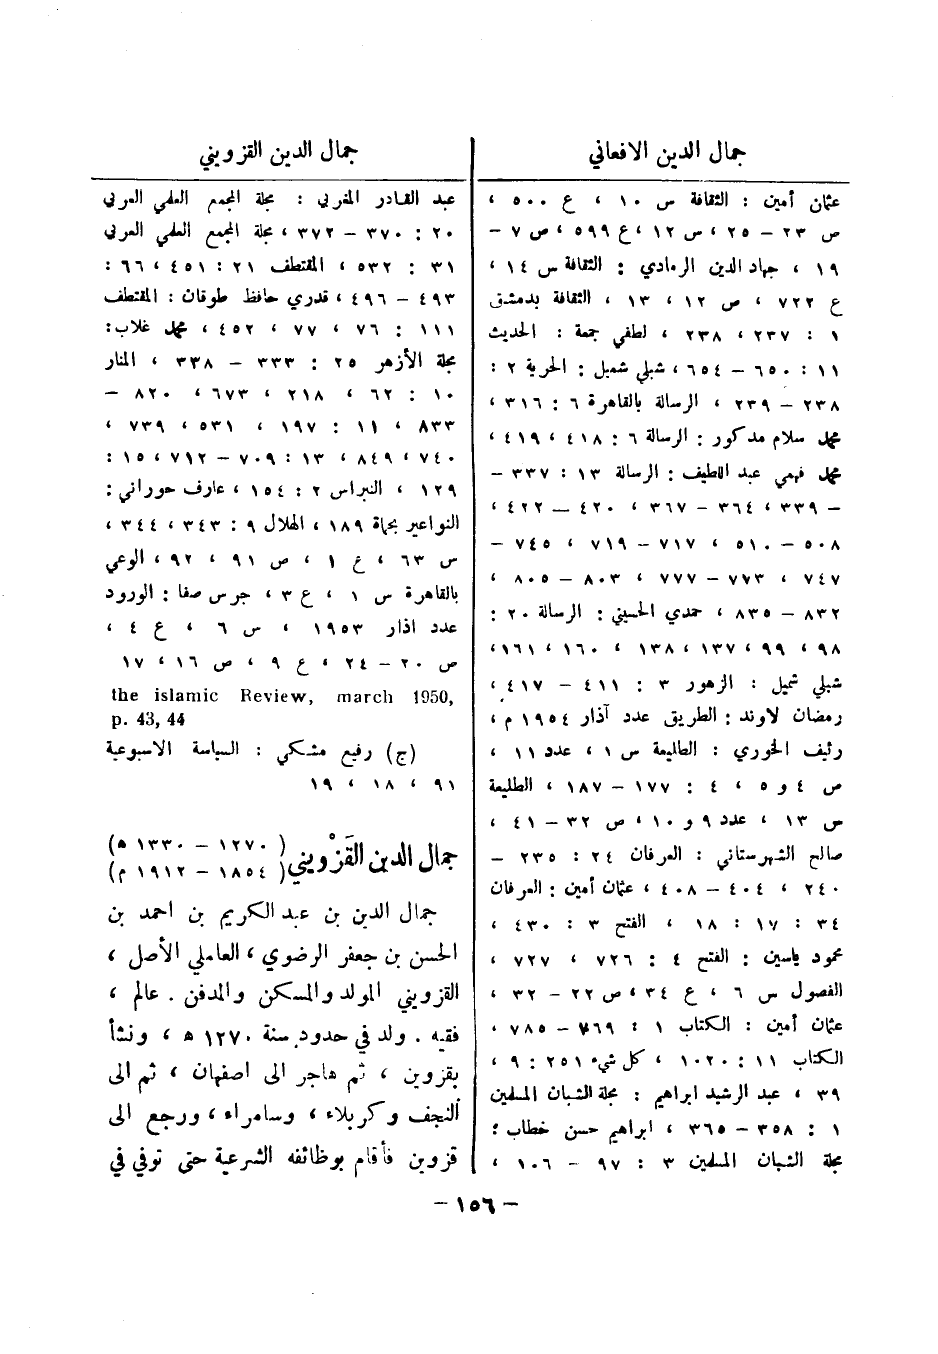 جمال الدين الافغاني
عثمان أمين : الثقافة س ١٠ ، ع ٥٠٠ ،
ص ٢٣ – ٢٥ ، س ١٢ ، ع ٥٩٩ ، ص ٧ –
١٩ ، جهاد الدين الرمادي : الثقافة س ١٤ ،
ع ٧٢٢ ، ص ١٢ ، ١٣ ، الثقافة بدمشق
١ : ٢٣٧ ، ٢٣٨ ، لطفي جمعة : الحديث
١١ : ٦٥٠ – ٦٥٤ ، شبلي شميل : الحرية ٢ :
٢٣٨ – ٢٣٩ ، الرسالة بالقاهرة ٦ : ٣١٦ ،
محمد سلام مدكور : الرسالة ٦ : ٤١٨ ، ٤١٩ ،
محمد فهمي عبد اللطيف : الرسالة ١٣ : ٣٣٧ –
– ٣٣٩ ، ٣٦٤ – ٣٦٧ ، ٤٢٠ – ٤٢٢ ،
٥٠٨ – ٥١٠ ، ٧١٧ – ٧١٩ ، ٧٤٥ –
٧٤٧ ، ٧٧٣ – ٧٧٧ ، ٨٠٣ – ٨٠٥ ،
٨٣٢ – ٨٣٥ ، حمدي الحسيني : الرسالة ٢٠ :
٩٨ ، ٩٩ ، ١٣٧ ، ١٣٨ ، ١٦٠ ، ١٦١ ،
شبلي شميل : الزهور ٣ : ٤١١ – ٤١٧ ،
رمضان لاوند : الطريق عدد آذار ١٩٥٤ م ،
رئيف الخوري : الطليعة س ١ ، عدد ١١ ،
ص ٤ و ٥ ، ٤ : ١٧٧ – ١٨٧ ، الطليعة
س ١٣ ، عدد ٩ و ١٠ ، ص ٣٢ – ٤١ ،
صالح الشهرستاني : العرفان ٢٤ : ٢٣٥ –
٢٤٠ ، ٤٠٤ – ٤٠٨ ، عثمان أمين : العرفان
٣٤ : ١٧ : ١٨ ، الفتح ٣ : ٤٣٠ ،
محمود ياسين : الفتح ٤ : ٧٢٦ ، ٧٢٧ ،
الفصول س ٦ ، ع ٣٤ ، ص ٢٢ – ٣٢ ،
عثمان أمين : الكتاب ١ : ٧٦٩ – ٧٨٥ ،
الكتاب ١١ : ١٠٢٠ ، كل شيء ٢٥١ : ٩ ،
٣٩ ، عبد الرشيد ابراهيم : مجلة الشبان المسلمين
١ : ٣٥٨ – ٣٦٥ ، ابراهيم حسن خطاب :
مجلة الشبان المسلمين ٣ : ٩٧ – ١٠٦ ،
جمال الدين القزويني
عبد القادر المغربي : مجلة المجمع العلمي العربي
٢٠ : ٣٧٠ – ٣٧٢ ، مجلة المجمع العلمي العربي
٣١ : ٥٣٢ ، المقتطف ٢١ : ٤٥١ ، ٦٦ :
٤٩٣ – ٤٩٦ ، قدري حافظ طوقان : المقتطف
١١١ : ٧٦ ، ٧٧ ، ٤٥٢ ، محمد غلاب :
مجلة الأزهر ٢٥ : ٣٣٣ – ٣٣٨ ، المنار
١٠ : ٦٢ ، ٢١٨ ، ٦٧٣ ، ٨٢٠ –
٨٣٣ ، ١١ : ١٩٧ ، ٥٣١ ، ٧٣٩ ،
٧٤٠ ، ٨٤٩ ، ١٣ : ٧٠٩ – ٧١٢ ، ١٥ :
١٢٩ ، النبراس ٢ : ١٥٤ ، عارف حوراني :
النواعير بحماة ١٨٩ ، الهلال ٩ : ٣٤٣ ، ٣٤٤ ،
س ٦٣ ، ع ١ ، ص ٩١ ، ٩٢ ، الوعي
بالقاهرة س ١ ، ع ٣ ، جرس صفا : الورود
عدد اذار ١٩٥٣ ، س ٦ ، ع ٤ ،
ص ٢٠ – ٢٤ ، ع ٩ ، ص ١٦ ، ١٧
the islamic Review, march 1950,
p. 43, 44
(ج) رفيع مشكي : السياسة الاسبوعية
٩١ ، ١٨ ، ١٩
جمال الدين القَزْويني ( ١٢٧٠ – ١٣٣٠ ه )
( ١٨٥٤ – ١٩١٢ م )
جمال الدين بن عبد الكريم بن احمد بن
الحسن بن جعفر الرضوي ، العاملي الأصل ،
القزويني المولد والمسكن والمدفن . عالم ،
فقيه . ولد في حدود سنة ١٢٧٠ ه ، ونشأ
بقزوين ، ثم هاجر الى اصفهان ، ثم الى
النجف وكربلاء ، وسامراء ، ورجع الى
قزوين فأقام بوظائفه الشرعية حتى توفي في
– ١٥٦ –